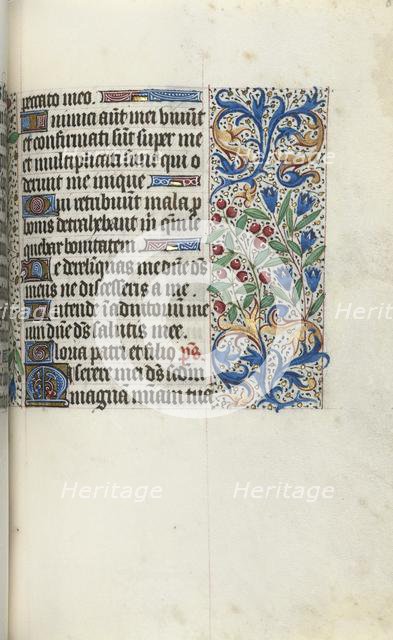 peccato meo.
Inimici aut mei vivunt
et confirmati sut super me
et multiplicati sunt qui o
derunt me inique
Qui retribuunt mala p
bonis detrahebant m qm se
quebar bonitatem
Ne derelinquas me dne ds
meus ne discesseris a me.
Intende i adiutorium me
um dne ds salutis mee.
Gloria patri et filio ps
Miserere mei ds scdm
magna miam tua
Heritage Heritage Heritage
Heritage Heritage